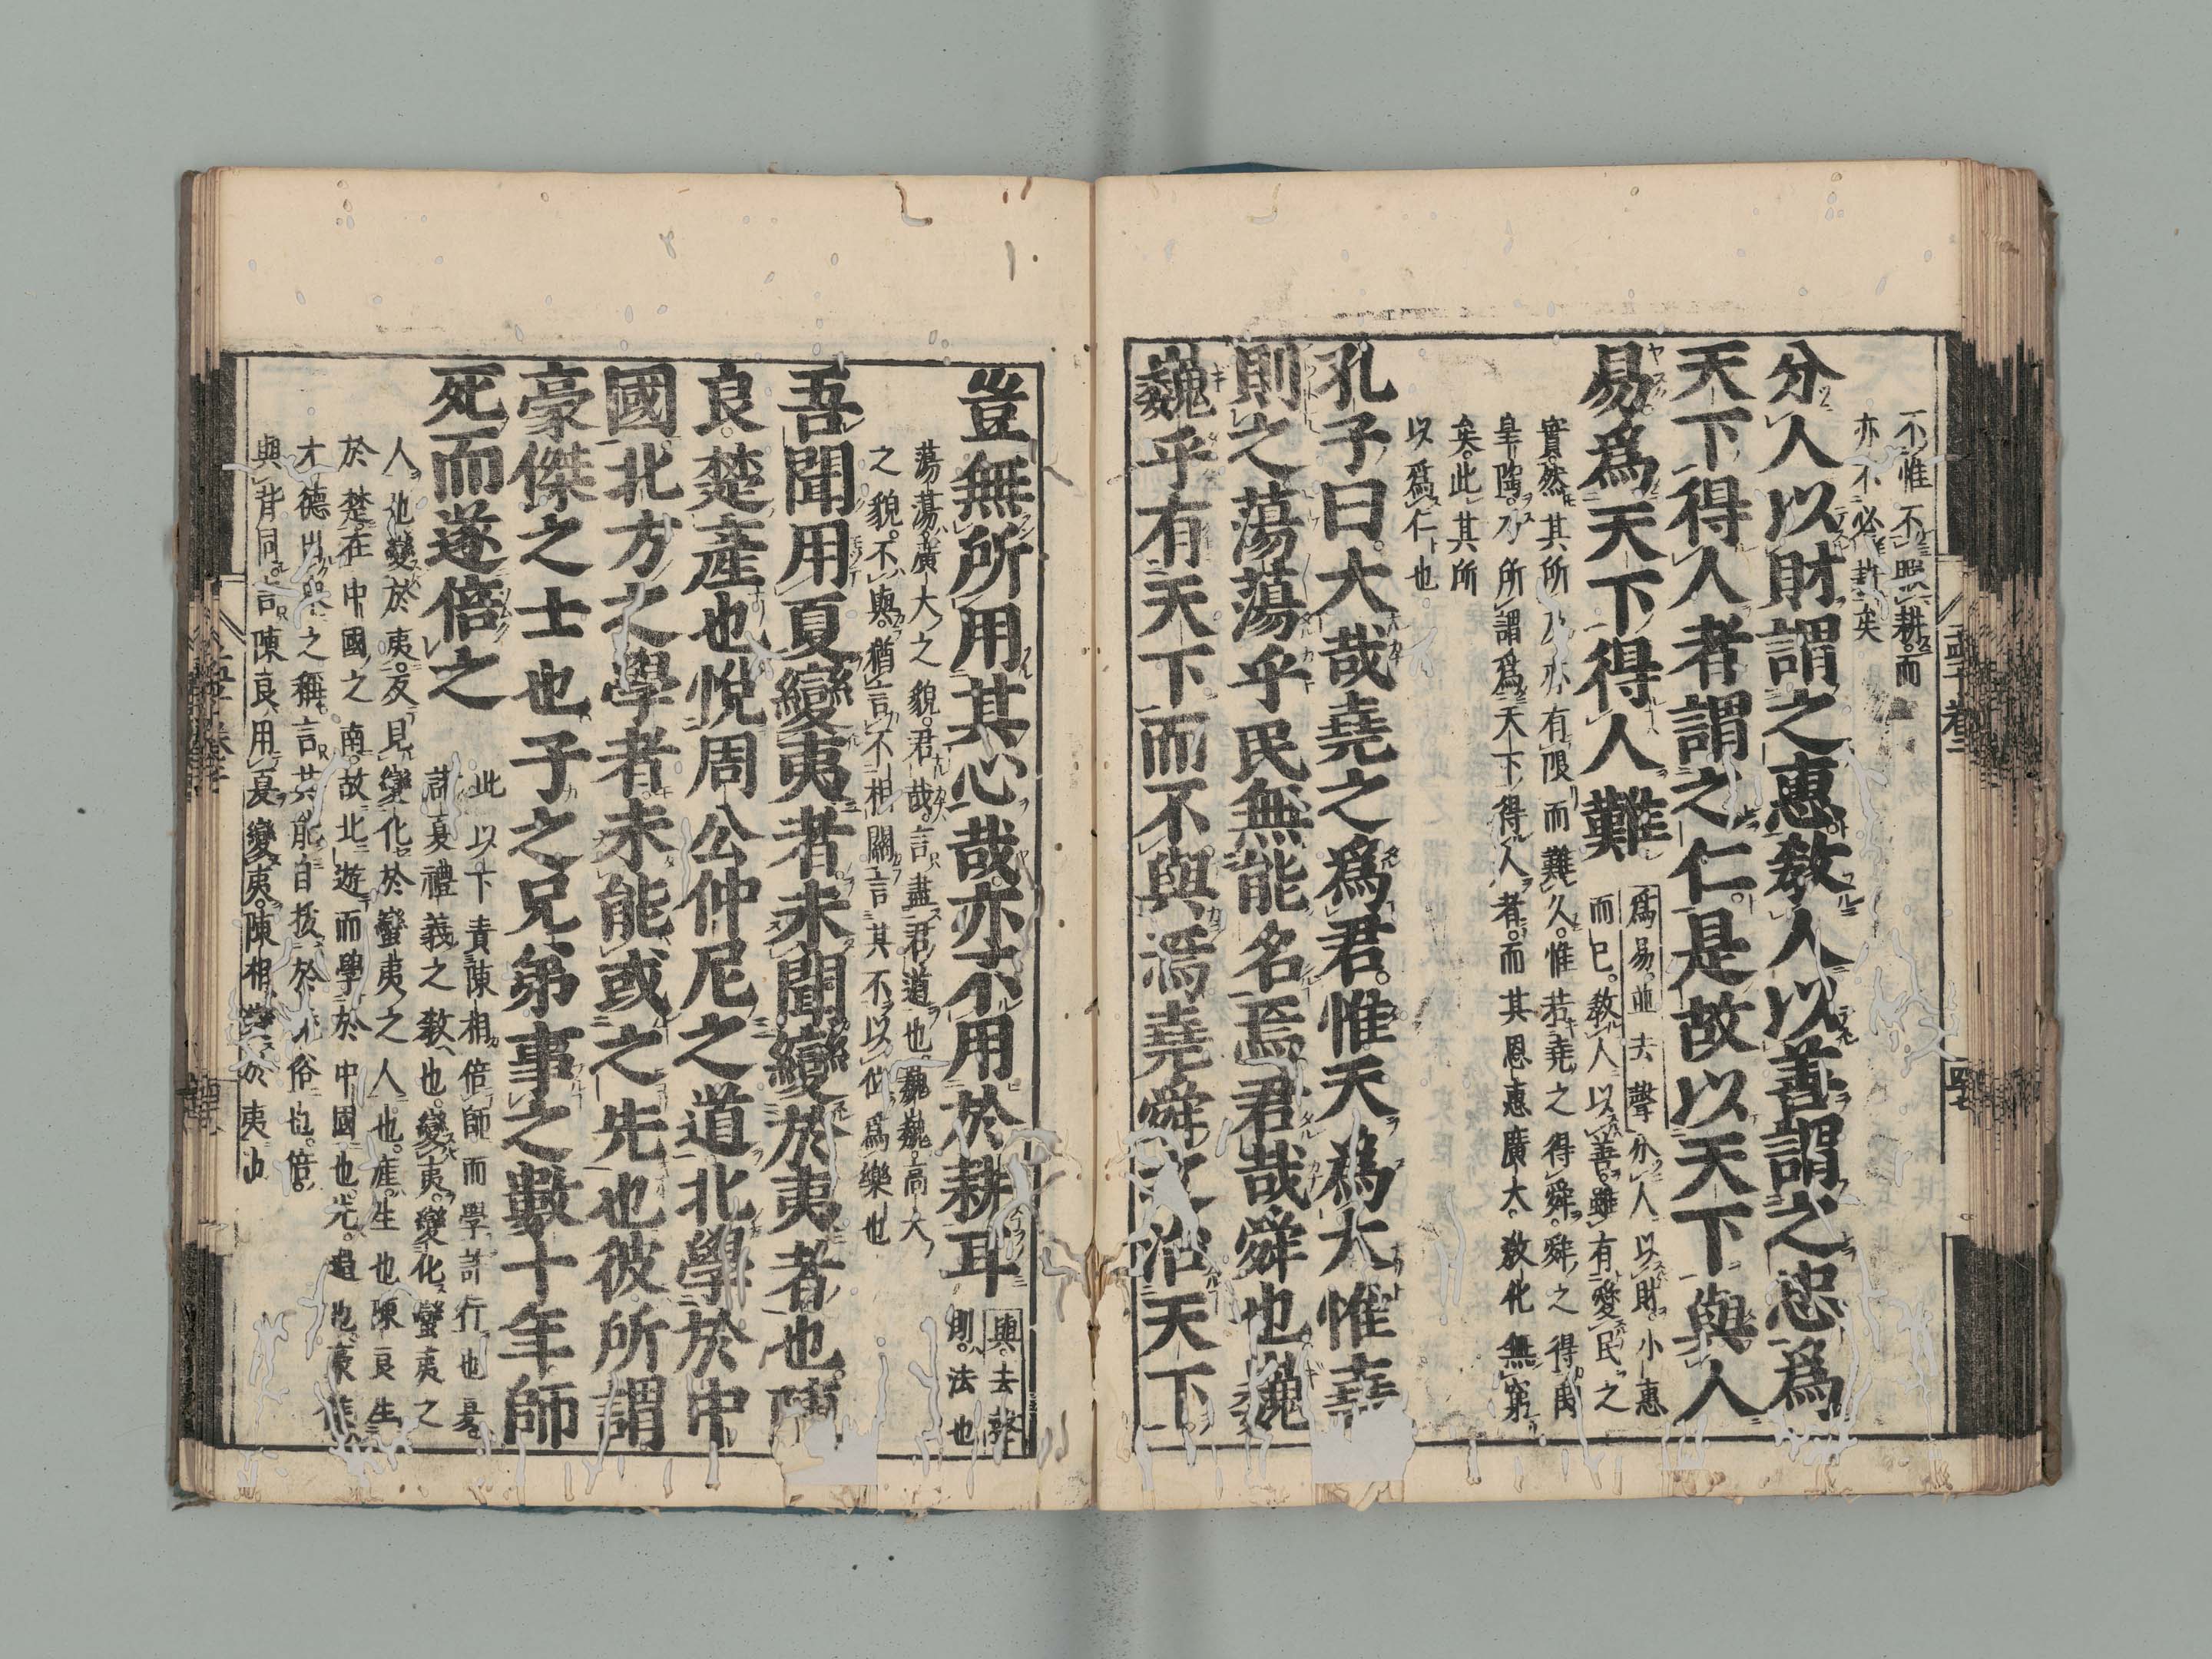 不惟不暇耕而
亦不必耕矣
分人以財謂之惠教人以善謂之忠爲
天下得人者謂之仁是故以天下與人
易爲天下得人難
爲易並去聲 分人以財小惠
而已教人以善雖有愛民之
實然其所及亦有限而難久惟若堯之得舜舜之得禹
皐陶乃所謂爲天下得人者而其恩惠廣大教化無窮
矣此其所
以爲仁也
孔子曰大哉堯之爲君惟天爲大惟堯
則之蕩蕩乎民無能名焉君哉舜也巍
巍乎有天下而不與焉堯舜之治天下
豈無所用其心哉亦不用於耕耳
與去聲
則法也
蕩蕩廣大之貌君哉言盡君道也巍巍高大
之貌不與猶言不相關言其不以位爲樂也
吾聞用夏變夷者未聞變於夷者也陳
良楚產也悅周公仲尼之道北學於中
國北方之學者未能或之先也彼所謂
豪傑之士也子之兄弟事之數十年師
死而遂倍之
此以下責陳相倍師而學許行也夏
諸夏禮義之教也變夷變化蠻夷之
人也變於夷反見變化於蠻夷之人也產生也陳良生
於楚在中國之南故北遊而學於中國也先過也豪傑
才德出衆之稱言其能自拔於流俗也倍
與背同言陳良用夏變夷陳相變於夷也